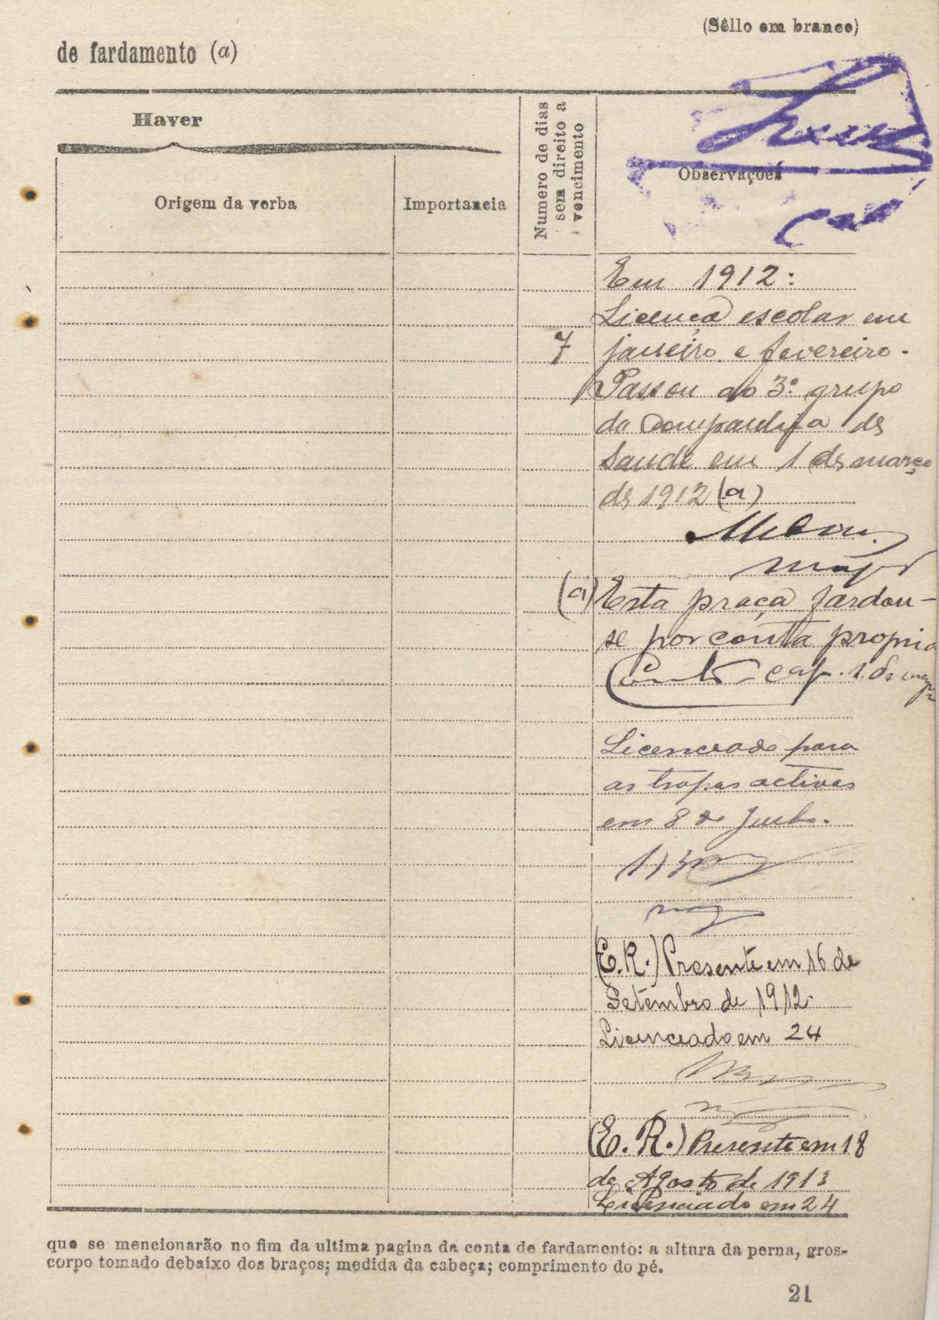 (Sêllo em branco)
de fardamento (a)
Haver
Numero de dias
sem direito a
vencimento
Observações
Origem da verba
Importancia
Em 1912:
Licença escolar em
7 janeiro e fevereiro.
Passou ao 3º grupo
da Companhia de
Saude em 1 de março
de 1912 (a)
major
(a) Esta praça fardou-
se por conta propria
cap.
Licenceado para
as tropas activas
em 8 de Junho.
(E.R.) Presente em 16 de
Setembro de 1912.
Licenceado em 24
(E.R.) Presente em 18
de Agosto de 1913
Licenciado em 24
que se mencionarão no fim da ultima pagina da conta de fardamento: a altura da perna, gros-
corpo tomado debaixo dos braços; medida da cabeça; comprimento do pé.
21